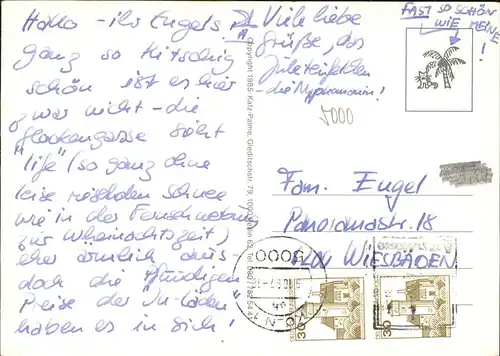 Hallo - ihr Engels
ganz so kitschig
schön ist es hier
zwar nicht - die
Glockengasse sieht
"life" (so ganz ohne
leise rieselnden Schnee
wie in der Fernsehwerbung
zur Weihnachtszeit)
eher ärmlich aus
doch die
Preise der In-Läden
haben es in sich!
Viele liebe
Grüße, das
- die
5000
FAST SO SCHÖN
WIE MEINE
!
Copyright 1985 Katz-Palme, Gleditschstr. 79, 1000 Berlin 62, Tel.
Fam. Engel
Panoramastr. 18
6204 WIESBADEN
5000
KÖLN 1
30
30